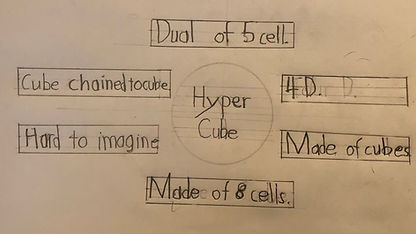 Dual of 5 cell.
Cube chained to cube
4 D.
Hyper
Cube
Hard to imagine
Made of cubes
Made of 8 cells.